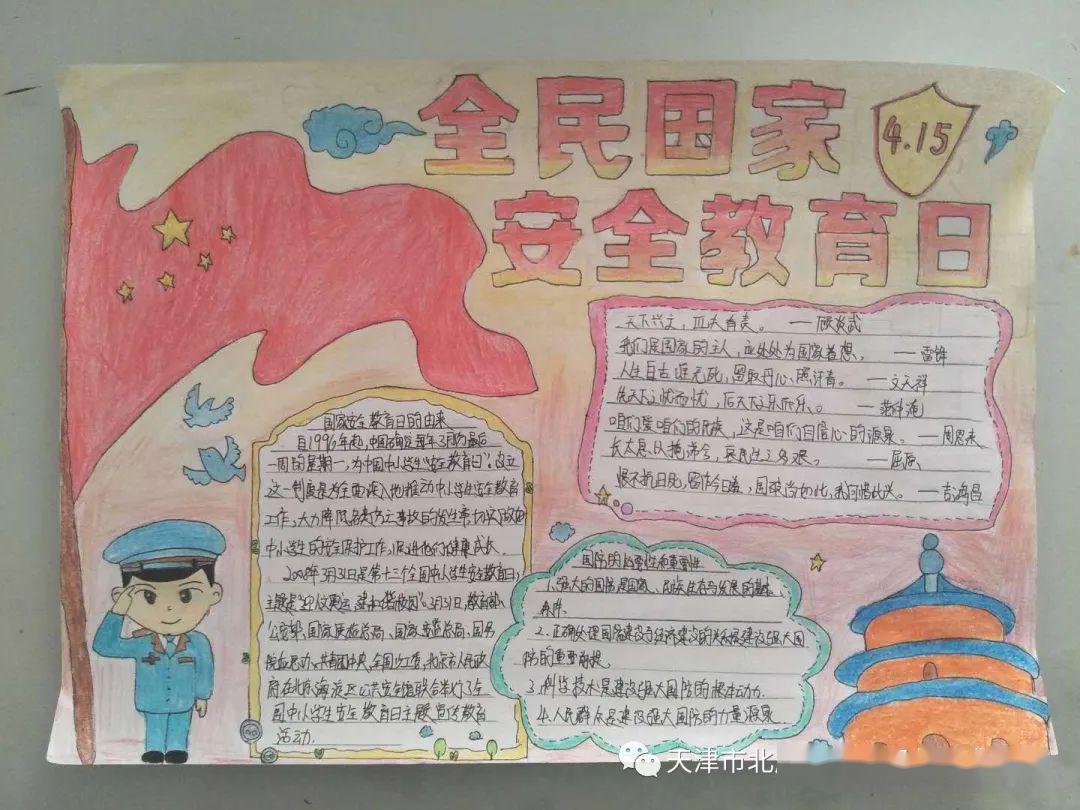 全民国家
4.15
安全教育日
天下兴亡，匹夫有责。 ——顾炎武
我们是国家的主人，应处处为国家着想。 ——雷锋
人生自古谁无死，留取丹心照汗青。 ——文天祥
先天下之忧而忧，后天下之乐而乐。 ——范仲淹
咱们爱咱们的民族，这是咱们自信心的源泉。 ——周恩来
长太息以掩涕兮，哀民生之多艰。 ——屈原
恨不抗日死，留作今日羞，国破尚如此，我何惜此头。 ——吉鸿昌
国家安全教育日的由来
自1996年起，中国确定每年3月的最后
一周的星期一，为中国中小学生“安全教育日”。设立
这一制度是为全面深入地推动中小学生安全教育
工作，大力降低各类伤亡事故的发生率，切实做好
中小学生的安全保护工作，促进他们健康成长。
2008年3月31日是第十三个全国中小学生安全教育日，
主题是“迎人奥运、建和谐校园”。3月31日，教育部、
公安部、国家
院应急办、共青团中央、全国少工委、北京市人民政
府在北京海淀区公共安全馆联合举行了全
国中小学生安全教育日主题宣传教育
活动。
国防的必要性和重要性
1.强大的国防是国家、民族生存与发展的基本
条件.
2.正确处理国防建设与经济建设的关系是建设强大国
防的重要前提.
3.科学技术是建设强大国防的根本动力.
4.人民群众是建设强大国防的力量源泉.
天津市北